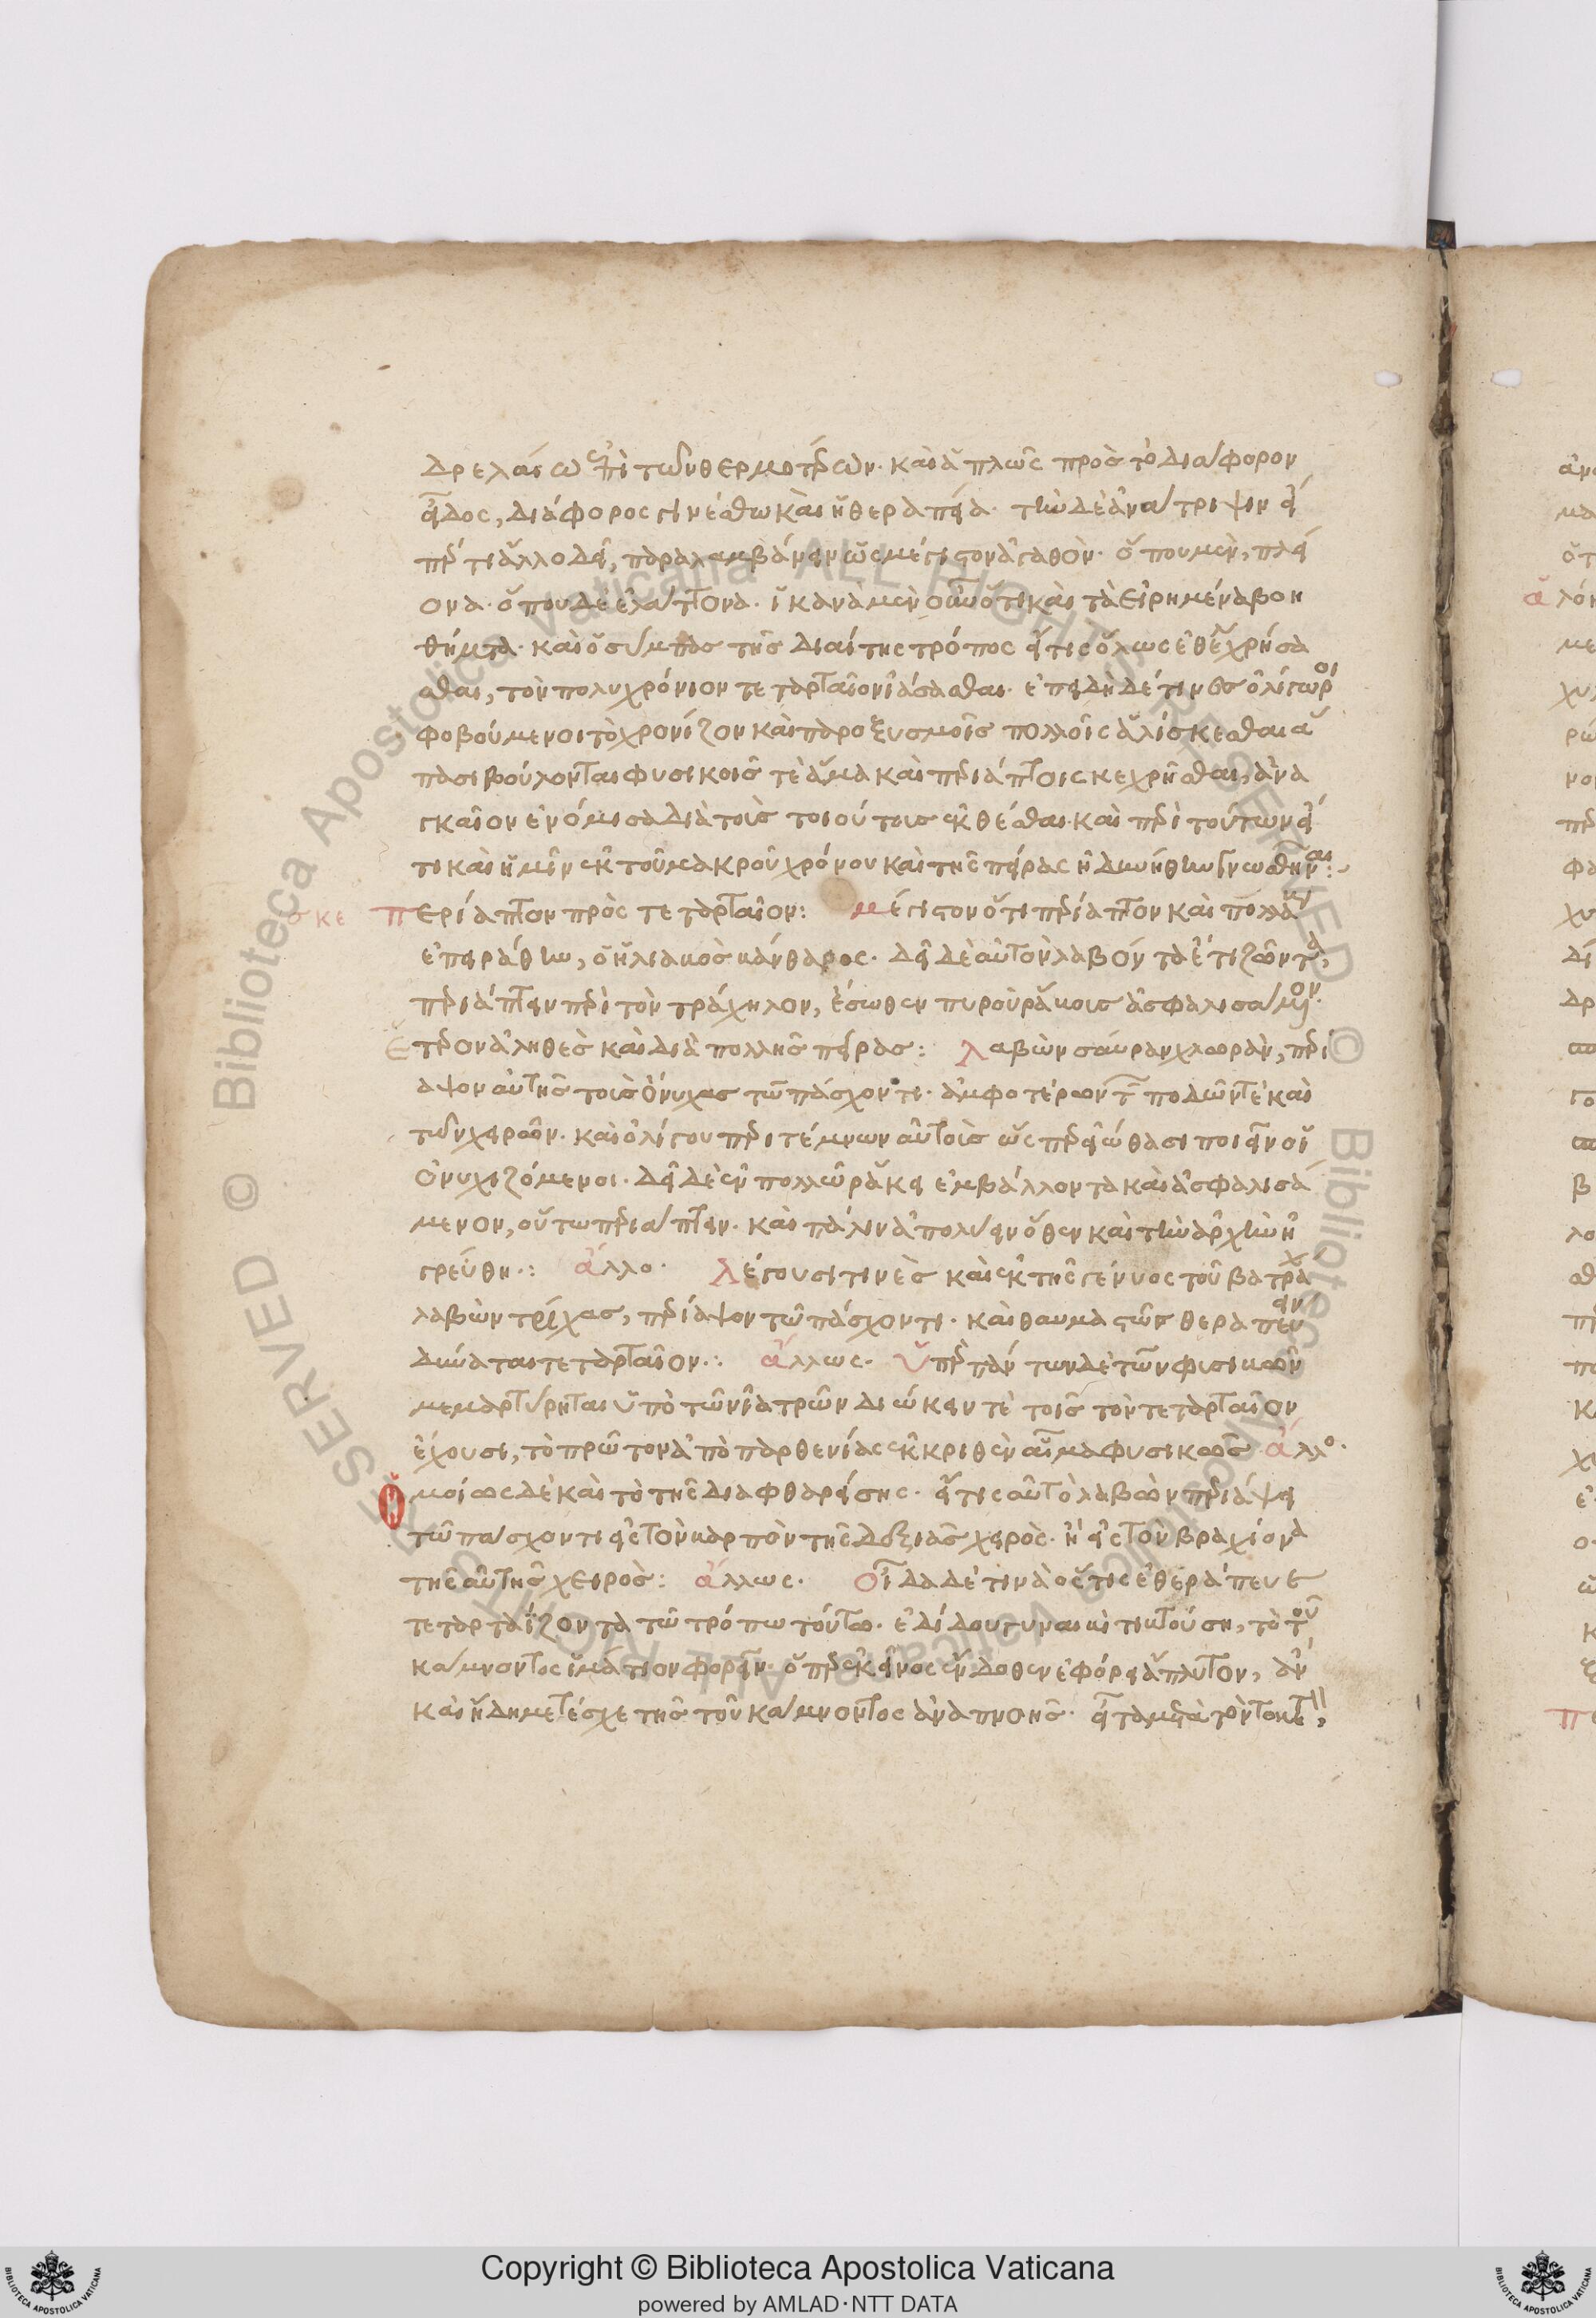 δρελαίω ἐπὶ τῶν θερμοτέρων. καὶ ἁπλῶς πρὸς τὸ διάφορον
εἶδος, διάφορος γινέσθω καὶ ἡ θεραπεία. τὴν δὲ ἀνάτριψιν εἴ
περ τι ἄλλο δεῖ, παραλαμβάνειν ὡς μέγιστον ἀγαθόν. ὅπου μὲν, πλεί
ονα. ὅπου δὲ ἐλάττονα. ἱκανὰ μὲν οὖν ὅτι καὶ τὰ εἰρημένα βοη
θήματα. καὶ ὁ σύμπας τῆς διαίτης τρόπος εἴ τις ὅλως ἐθέλει χρήσα
σθαι, τὸν πολυχρόνιον τεταρταῖον ἰάσασθαι. ἐπειδὴ δέ τινες ὀλίγωροι
φοβούμενοι τὸ χρονίζον καὶ παροξυσμοῖς πολλοῖς ἁλίσκεσθαι ἅ
πασι βούλονται φυσικοῖς τὲ ἅμα καὶ περιάπτοις κεχρῆσθαι, ἀνα
γκαῖον ἐνόμισα διὰ τοὺς τοιούτους ἐκθέσθαι. καὶ περὶ τούτων εἴ
τι καὶ ἡμῖν ἐκ τοῦ μακροῦ χρόνου καὶ τῆς πείρας ἠδυνήθην γνωσθῆναι:
σκε περίαπτον πρὸς τεταρταῖον: μέγιστον ὅτι περίαπτον καὶ πολλάκις
ἐπειράθην, ὁ ἡλιακὸς κάνθαρος. δεῖ δὲ αὐτὸν λαβόντα ἔτι ζῶντα,
περιάπτειν περὶ τὸν τράχηλον, ἔσωθεν πυροῦ ῥάκους ἀσφαλισάμενον.
ἕτερον ἀληθὲς καὶ διὰ πολλῆς πείρας: λαβὼν σαύραν χλωρὰν, περί
αψον αὐτῆς τοὺς ὄνυχας τῶ πάσχοντι. ἀμφοτέρων τῶν ποδῶν τὲ καὶ
τῶν χειρῶν. καὶ ὀλίγου περιτέμνων αὐτοὺς ὥσπερ εἰώθασι ποιεῖν οἱ
ὀνυχιζόμενοι. δεῖ δὲ ἐν πολλῶ ῥάκει ἐμβάλλοντα καὶ ἀσφαλισά
μενον, οὕτω περιάπτειν. καὶ πάλιν ἀπολύειν ὅθεν καὶ τὴν ἀρχὴν ἠ
γρεύθη.: ἄλλο. λέγουσι τινὲς καὶ ἐκ τῆς γένυος τοῦ βατράχου
λαβὼν τρίχας, περίαψον τῶ πάσχοντι. καὶ θαυμαστῶς θεραπεύειν
δύναται τεταρταῖον.: ἄλλως. ὑπὲρ πάντων δὲ τῶν φισικῶν
μεμαρτύρηται ὑπὸ τῶν ἰατρῶν διώκειν τὲ τοῖς τὸν τεταρταῖον
ἔχουσι, τὸ πρῶτον ἀπὸ παρθενίας ἐκκριθὲν αἷμα φυσικῶς ἄλλο.
ὁμοίως δὲ καὶ τὸ τῆς διαφθαρείσης. εἴ τις αὐτὸ λαβὼν περιάψει
τῶ πάσχοντι εἰς τὸν καρπὸν τῆς δεξιᾶς χειρὸς. ἢ εἰς τὸν βραχίονα
τῆς αὐτῆς χειρὸς: ἄλλως. οἶδα δέ τινα ὅς τις ἐθεράπευε
τεταρταΐζοντα τῶ τρόπω τούτω. ἐδίδου γυναικὶ τικτούση, τὸ τοῦ
κάμνοντος ἱμάτιον φορεῖν. ὅπερ ἐκεῖνος ἔνδοθεν ἐφόρει ἄπλυτον,
καὶ ἤδη μετέσχε τῆς τοῦ κάμνοντος ἀναπνοῆς. εἶτα μετὰ τὸν τοκετὸν,
Copyright © Biblioteca Apostolica Vaticana
powered by AMLAD·NTT DATA